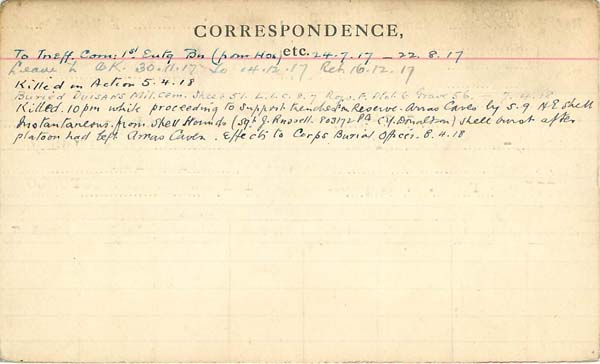 CORRESPONDENCE,
etc.
To Ineff. Com: 1st Entg Bn (from Hos) 24.7.17 – 22.8.17
Leave to U.K. 30.11.17 to 14.12.17 Ret. 16.12.17
Killed in Action 5.4.18
Buried Duisans Mil. Cem. Sheet 51. L.2.C. 9.7 Row. F. Plot 6 Grave 56. – 7.4.18
Killed. 10 pm while proceeding to support trenches in Reserve. Arras Caves by 5.9 H.E Shell
Instantaneous. from Shell Wounds (Sgt. J. Russell. 803172 (Y. Donaldson) shell burst after
platoon had left Arras Caven. Effects to Corps Burial Officer. 8.4.18